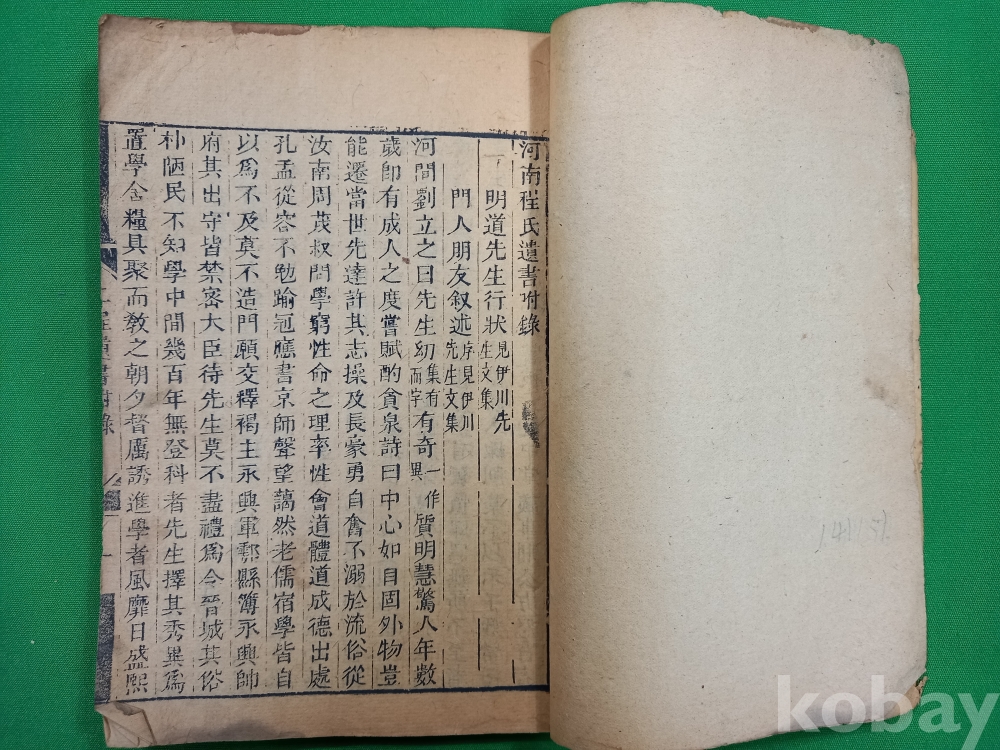 河南程氏遺書附錄
明道先生行狀見伊川先生文集
門人朋友叙述序見伊川先生文集
河間劉立之曰先生幼集有而字有奇一作異質明慧驚人年數
歲即有成人之度嘗賦酌貪泉詩曰中心如自固外物豈
能遷當世先達許其志操及長豪勇自奮不溺於流俗從
汝南周茂叔問學窮性命之理率性會道體道成德出處
孔孟從容不勉踰冠應書京師聲望藹然老儒宿學皆自
以爲不及莫不造門願交釋褐主永興軍鄠縣簿永興帥
府其出守皆禁密大臣待先生莫不盡禮爲令晉城其俗
朴陋民不知學中間幾百年無登科者先生擇其秀異爲
置學舍糧具聚而敎之朝夕督厲誘進學者風靡日盛熙
二程遺書附錄
一
kobay